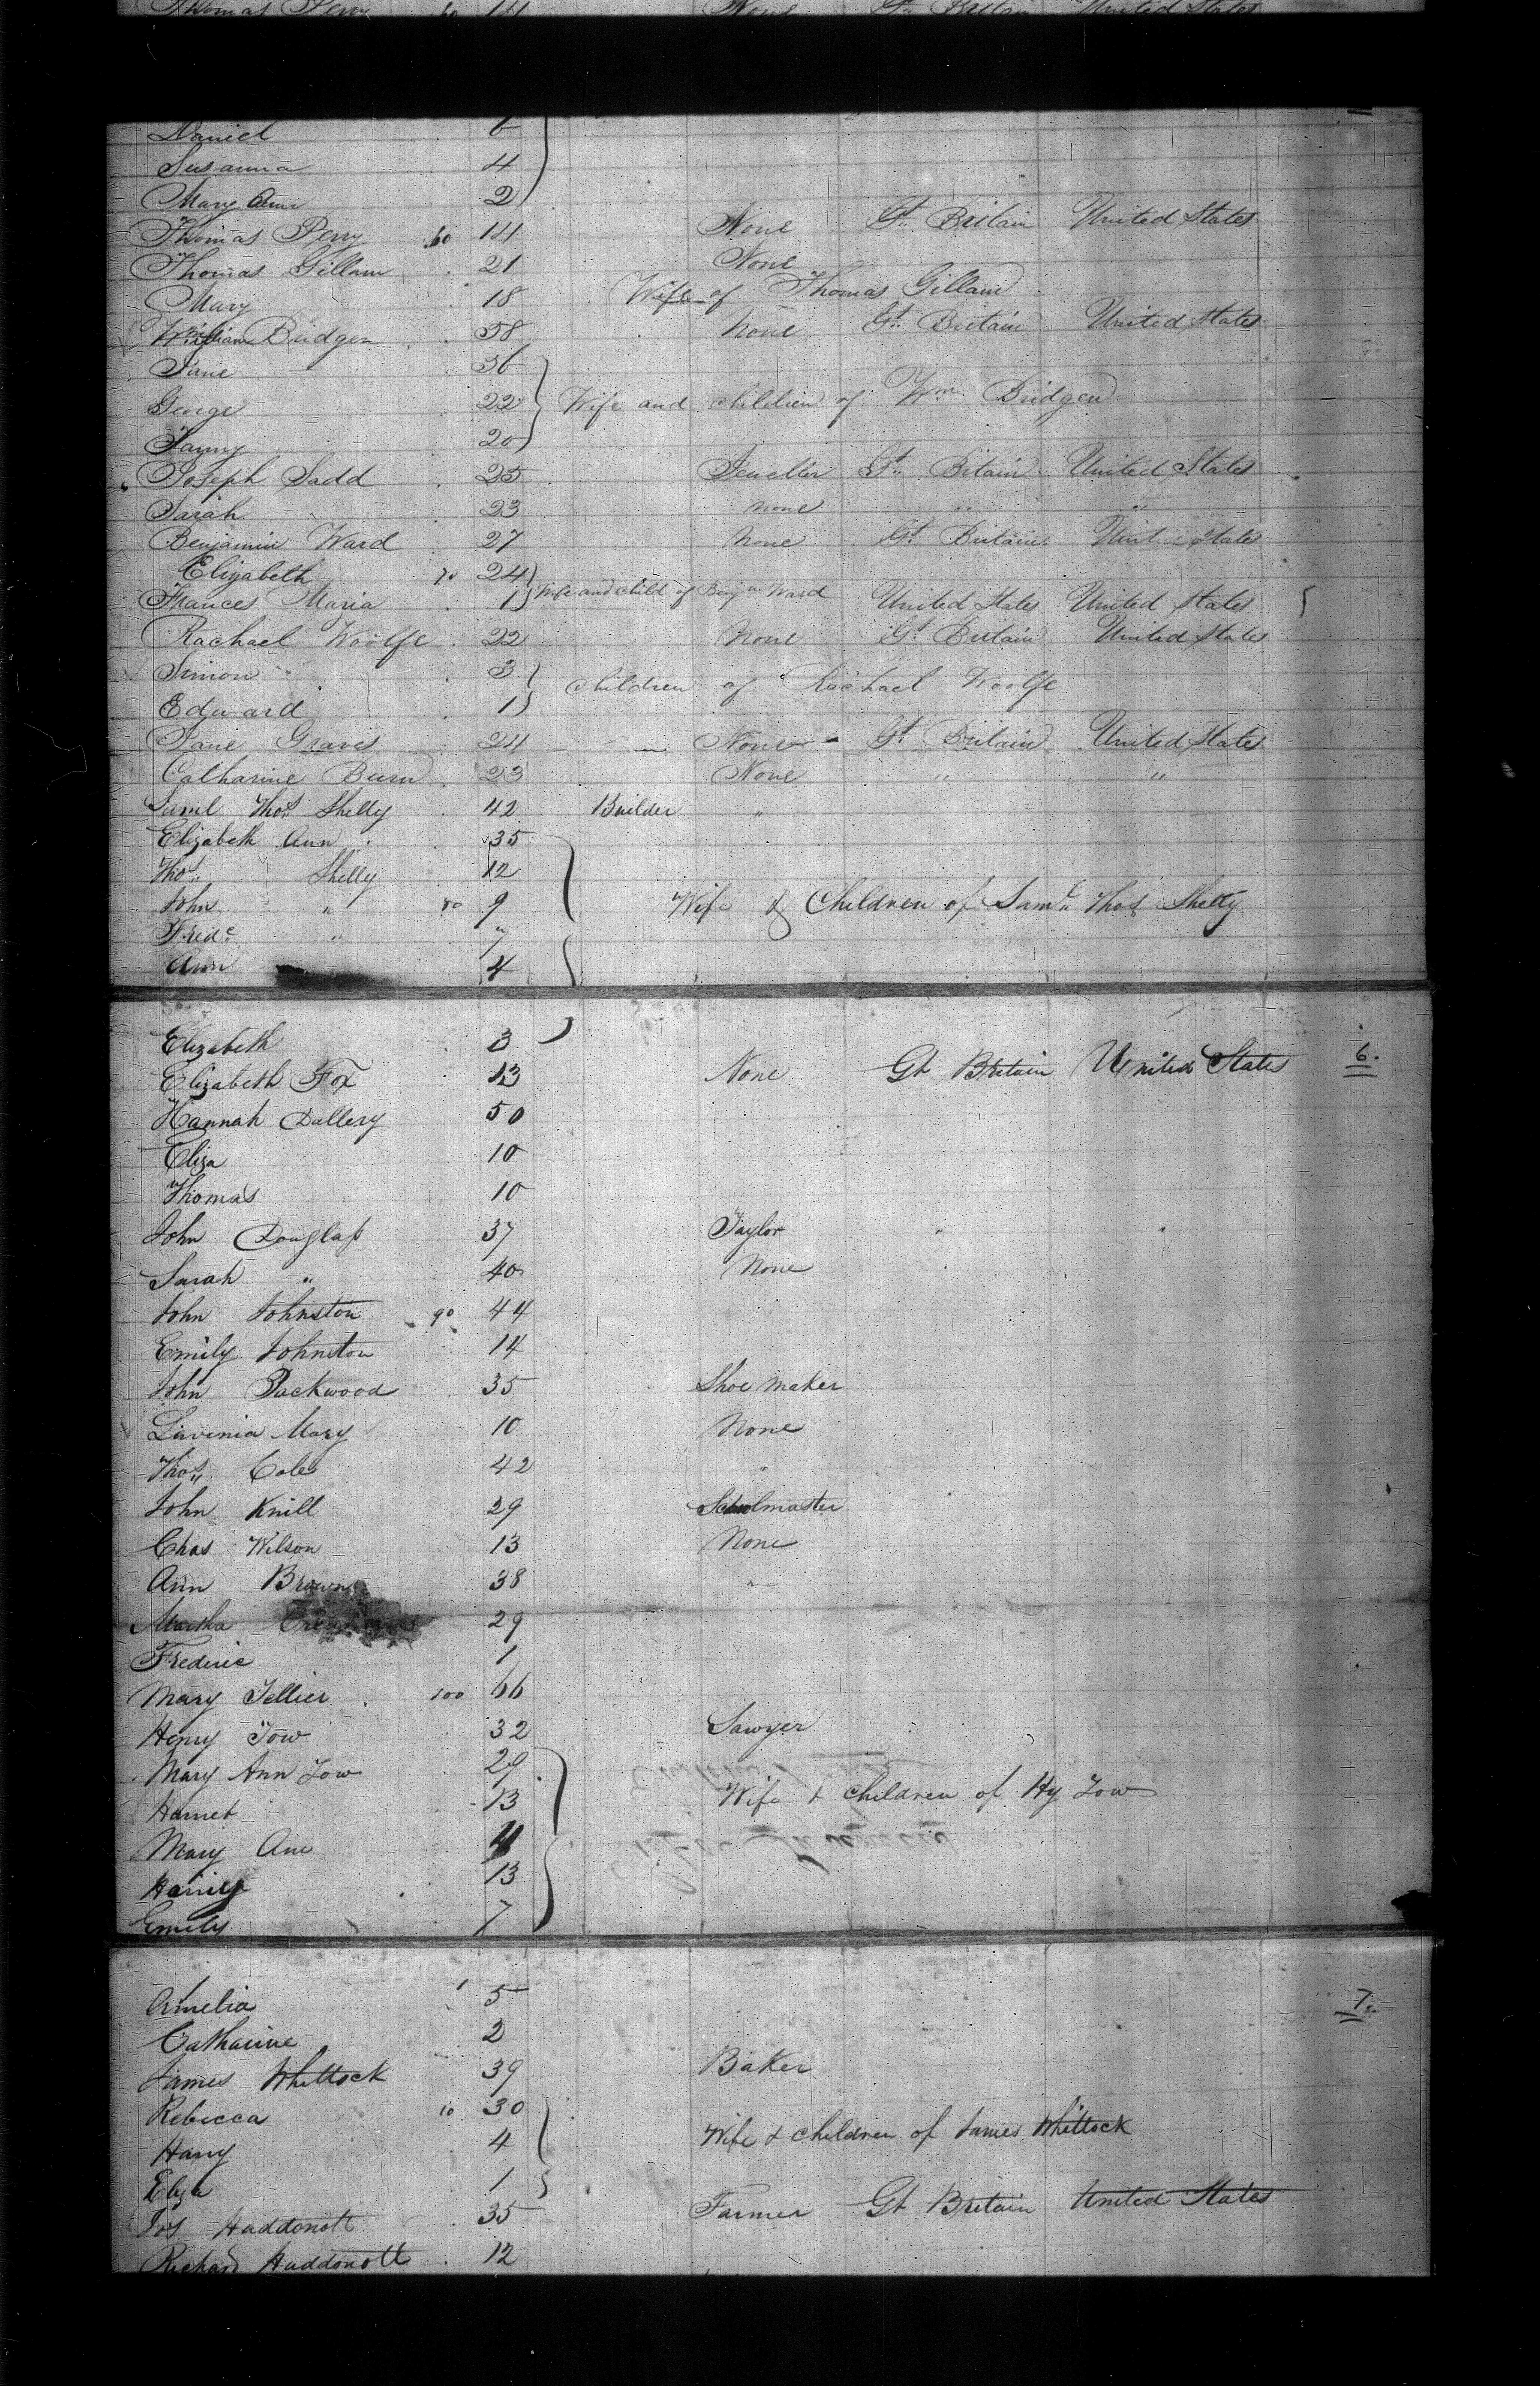 Thomas Perry 60 14 None Gt. Britain United States
Daniel 6
Susanna 4
Mary Ann 2
Thomas Perry 60 14 None Gt. Britain United States
Thomas Gillam 21 None
Mary 18 Wife of Thomas Gillam
William Bridgen 58 None Gt. Britain United States
Jane 56
George 22 Wife and children of Wm. Bridgen
Fanny 20
Joseph Sadd 25 Jeweller Gt. Britain United States
Sarah 23 None " "
Benjamin Ward 27 None Gt. Britain United States
Elizabeth 70 24
Frances Maria 1 Wife and child of Benjn Ward United States United States
Rachael Woolfe 22 None Gt. Britain United States
Simon 3
children of Rachael Woolfe
Edward 1
Jane Graves 24 None Gt. Britain United States
Catharine Burn 23 None " "
Saml Thos. Shelly 42 Builder "
Elizabeth Ann 35
Thos. Shelly 12
John " 80 9 Wife & Children of Saml. Thos. Shelly
Fredc. " 7
Ann 4
Elizabeth 3
6.
Elizabeth Fox 13 None Gt Britain United States
Hannah Dullery 50
Eliza 10
Thomas 10
John Douglass 37 Taylor " "
Sarah " 40 None
John Johnston 90 44
Emily Johnston 14
John Packwood 35 Shoe maker
Lavinia Mary 10 None
Thos. Coles 42 "
John Knill 29 Schoolmaster
Chas Wilson 13 None
Ann Brown 38 "
Martha 29
Frederic 1
Mary Tellier 100 66
Henry Tow 32 Sawyer
Mary Ann Tow 29
Harriet 13 Wife & children of Hy Tow
Mary Ann
Henry 13
Emily 7
Amelia 5
7.
Catharine 2
James Whittock 39 Baker
Rebecca 10 30
Wife & children of James Whittock
Harry 4
Eliza 1
Jos Haddonott 35 Farmer Gt Britain United States
Richard Haddonott 12